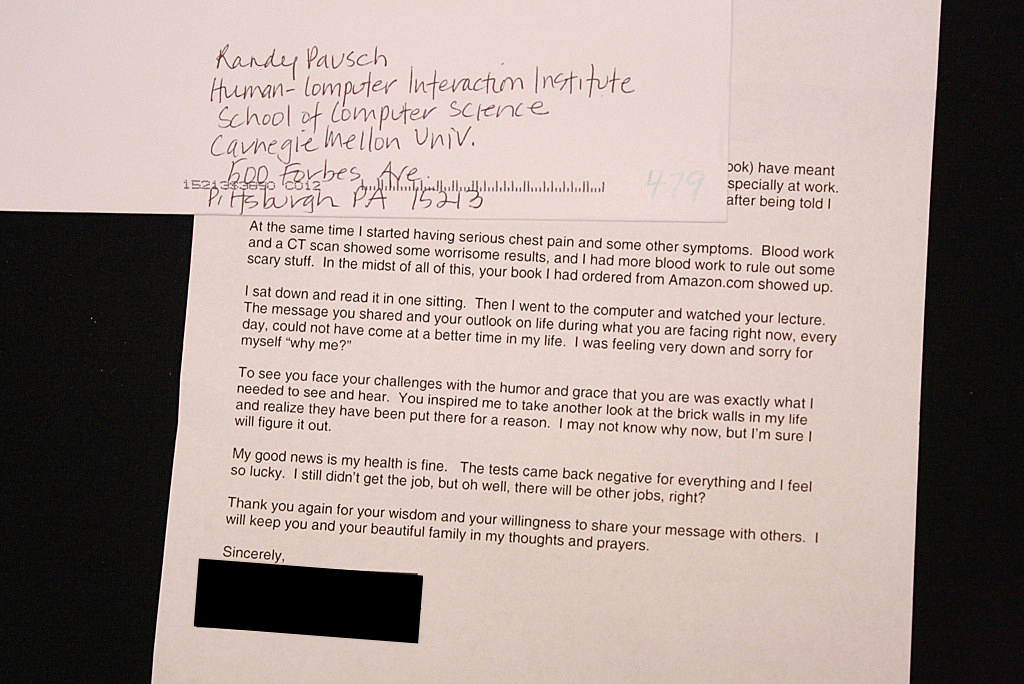 Randy Pausch
Human-Computer Interaction Institute
School of Computer Science
Carnegie Mellon Univ.
500 Forbes Ave.
Pittsburgh PA 15213
479
ook) have meant
specially at work.
after being told I
At the same time I started having serious chest pain and some other symptoms.  Blood work
and a CT scan showed some worrisome results, and I had more blood work to rule out some
scary stuff.  In the midst of all of this, your book I had ordered from Amazon.com showed up.
I sat down and read it in one sitting.  Then I went to the computer and watched your lecture.
The message you shared and your outlook on life during what you are facing right now, every
day, could not have come at a better time in my life.  I was feeling very down and sorry for
myself “why me?”
To see you face your challenges with the humor and grace that you are was exactly what I
needed to see and hear.  You inspired me to take another look at the brick walls in my life
and realize they have been put there for a reason.  I may not know why now, but I’m sure I
will figure it out.
My good news is my health is fine.   The tests came back negative for everything and I feel
so lucky.  I still didn’t get the job, but oh well, there will be other jobs, right?
Thank you again for your wisdom and your willingness to share your message with others.  I
will keep you and your beautiful family in my thoughts and prayers.
Sincerely,